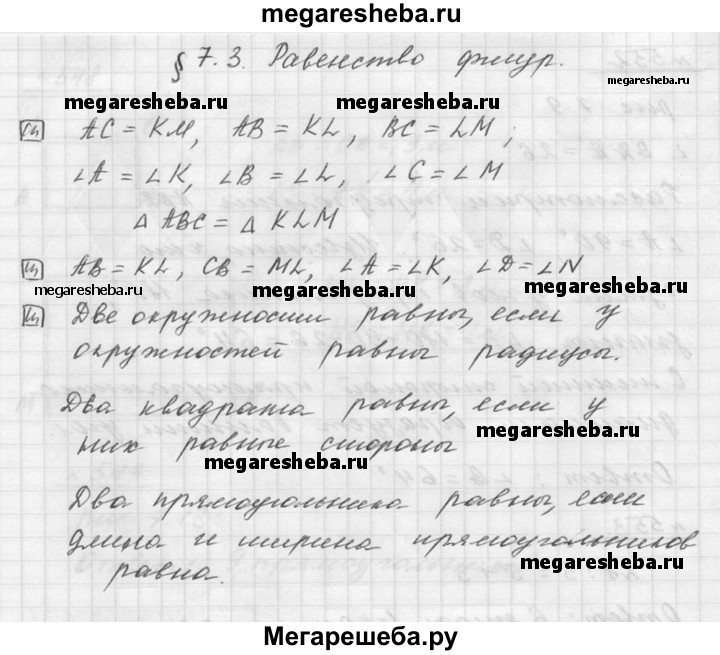 megaresheba.ru
§ 7.3. Равенство фигур.
megaresheba.ru megaresheba.ru
AC = KM, AB = KL, BC = LM;
∠A = ∠K, ∠B = ∠L, ∠C = ∠M
△ ABC = △ KLM
AB = KL, CB = ML, ∠A = ∠K, ∠D = ∠N
megaresheba.ru megaresheba.ru megaresheba.ru
Две окружности равны, если у
окружностей равны радиусы.
Два квадрата равны, если у
них равные стороны
megaresheba.ru
megaresheba.ru
Два прямоугольника равны, если
длина и ширина прямоугольников
равна.
megaresheba.ru
Мегарешеба.ру